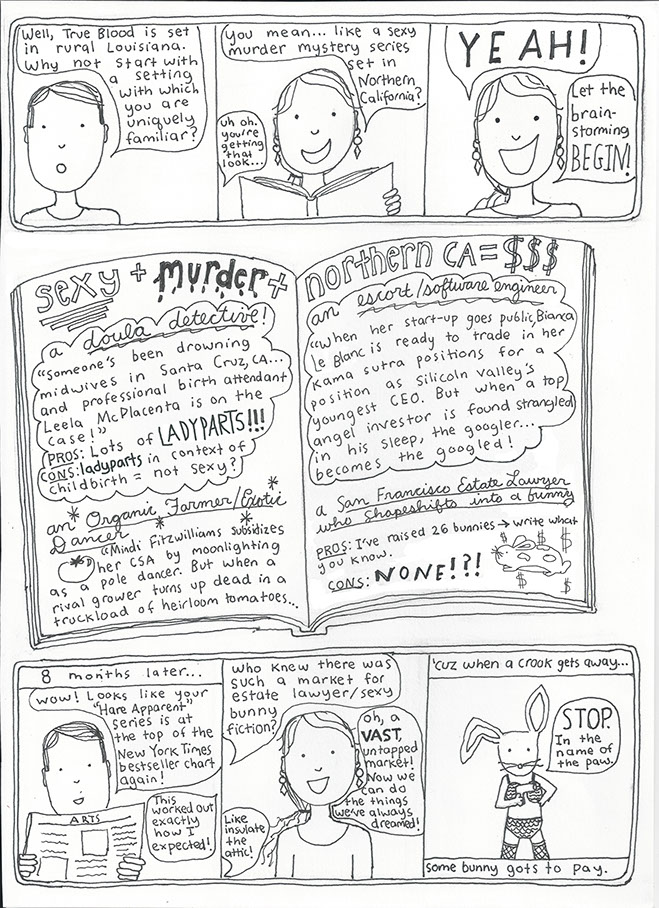 Well, True Blood is set
in rural Louisiana.
Why not start with
a setting
with which
you are
uniquely
familiar?
You mean... like a sexy
murder mystery series
set in
Northern
California?
uh oh.
you're
getting
that
look...
YEAH!
Let the
brain-
storming
BEGIN!
sexy + murder +
a doula detective!
"Someone's been drowning
midwives in Santa Cruz, CA...
and professional birth attendant
Leela McPlacenta is on the
case!"
PROS: Lots of LADYPARTS!!!
CONS: ladyparts in context of
childbirth = not sexy?
an Organic Farmer/Exotic
Dancer
"Mindi Fitzwilliams subsidizes
her CSA by moonlighting
as a pole dancer. But when a
rival grower turns up dead in a
truckload of heirloom tomatoes...
northern CA = $$$
an escort/software engineer
"When her start-up goes public, Bianca
Le Blanc is ready to trade in her
Kama sutra positions for a
position as Silicon Valley's
youngest CEO. But when a top
angel investor is found strangled
in his sleep, the googler...
becomes the googled!
a San Francisco Estate Lawyer
who Shapeshifts into a bunny
PROS: I've raised 26 bunnies → write what
you know.
CONS: NONE!?!
$ $ $
$ $
8 months later...
wow! Looks like your
"Hare Apparent"
series is at
the top of the
New York Times
bestseller chart
again!
This
worked out
exactly
how I
expected!
ARTS
who knew there was
such a market for
estate lawyer/sexy
bunny
fiction?
oh, a
VAST,
untapped
market!
Now we
can do
the things
we've always
dreamed!
Like
insulate
the
attic!
'cuz when a crook gets away...
STOP.
In the
name of
the paw.
some bunny gots to pay.